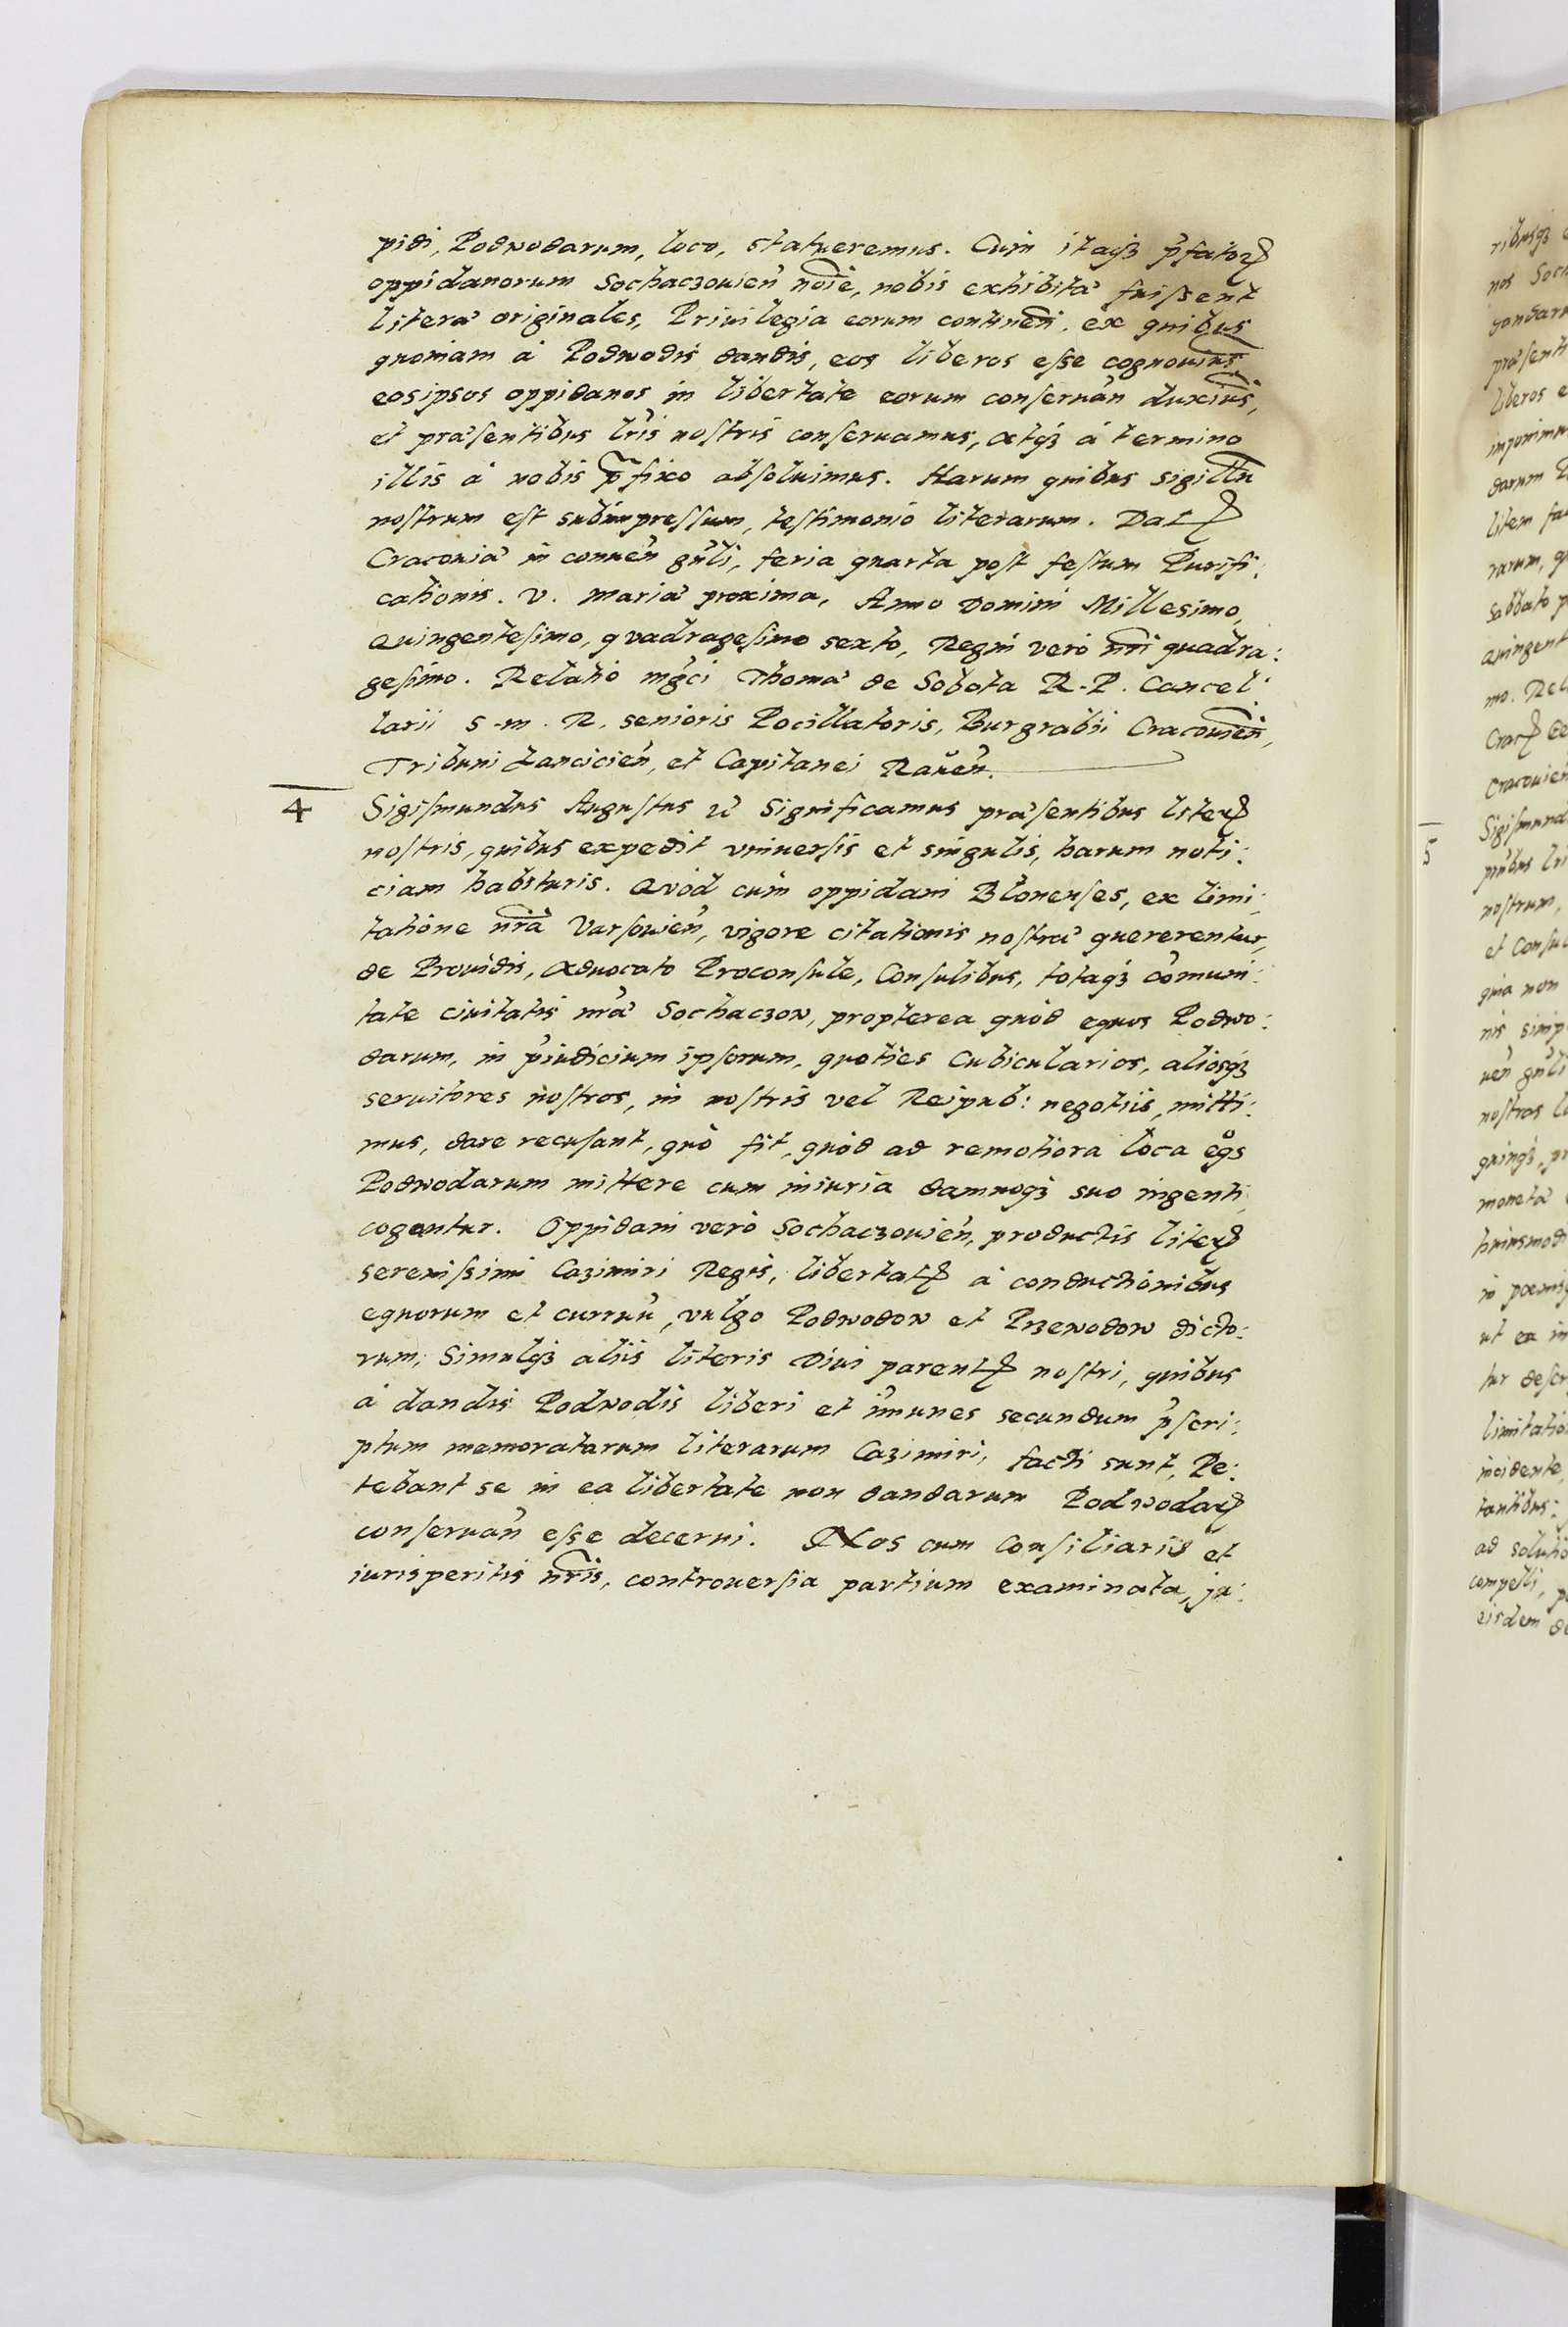 pidi, Podwodarum, loco, statueremus. Cum itaqꝫ p̃fatoꝝ
oppidanorum Sochaczouień noĩe, nobis exhibita fuiſsent
litera originales, Priuilegia eorum continẽn, ex quibus
quoniam à Podwodis dandis, eos liberos eſse cognouim̃s
eosipsos oppidanos in libertate eorum conſeruań duxim̃s,
et præſentibus lr̃is noſtris conſeruamus, atqꝫ à termino
illis à nobis p̃fixo abſoluimus. Harum quibus sigillũ
noſtrum eſt subimpreſſum, teſtimonio literarum. Datꝭ
Cracouiæ in conueń gñli, feria quarta poſt feſtum Purifi:
cationis. V. Mariæ proxima, Anno Domini Milleſimo,
Quingenteſimo, quadrageſimo sexto, Regni verò ñri quadra:
geſimo. Relatio mg̃ci Thomæ de Sobota R. P. Cancel:
larii S. M. R. senioris Pocillatoris, Burgrabii Cracouień,
Tribuni Lancicień, et Capitanei Raueń.
4 Sigiſmundus Auguſtus ⁊c̃ Significamus præſentibus literꝭ
noſtris, quibus expedit vniuerſis et singulis, harum noti:
ciam habituris. Quòd cum oppidani Blonenſes, ex limi:
tatione ñræ Varſouień, vigore citationis noſtræ quererentur,
de Prouidis, Aduocato Proconſule, Conſulibus, totaqꝫ cõmuni:
tate ciuitatis ñræ Sochaczow, propterea quòd equos Podwo:
darum, in p̃iudicium ipſorum, quoties Cubicularios, aliosqꝫ
seruitores noſtros, in noſtris vel Reipub: negotiis, mitti:
mus, dare recuſant, quò fit, quòd ad remotiora loca eq̊s
Podwodarum mittere cum iniuria damnoqꝫ suo ingenti,
cogantur. Oppidani verò Sochaczouień, productis literꝭ
sereniſsimi Cazimiri Regis, libertatꝭ à conductionibus
equorum et curruũ, vulgo Podwodow et Przewodow dicto:
rum, Simulqꝫ aliis literis Diui parentꝭ noſtri, quibus
à dandis Podwodis liberi et im̃unes secundum p̃ſcri:
ptum memoratarum literarum Cazimiri, facti sunt, Pe:
tebant se in ea libertate non dandarum Podwodaꝝ
conſeruań eſse decerni. Nos cum Conſiliariis et
iurisperitis ñris, controuerſia partium examinata, ju: